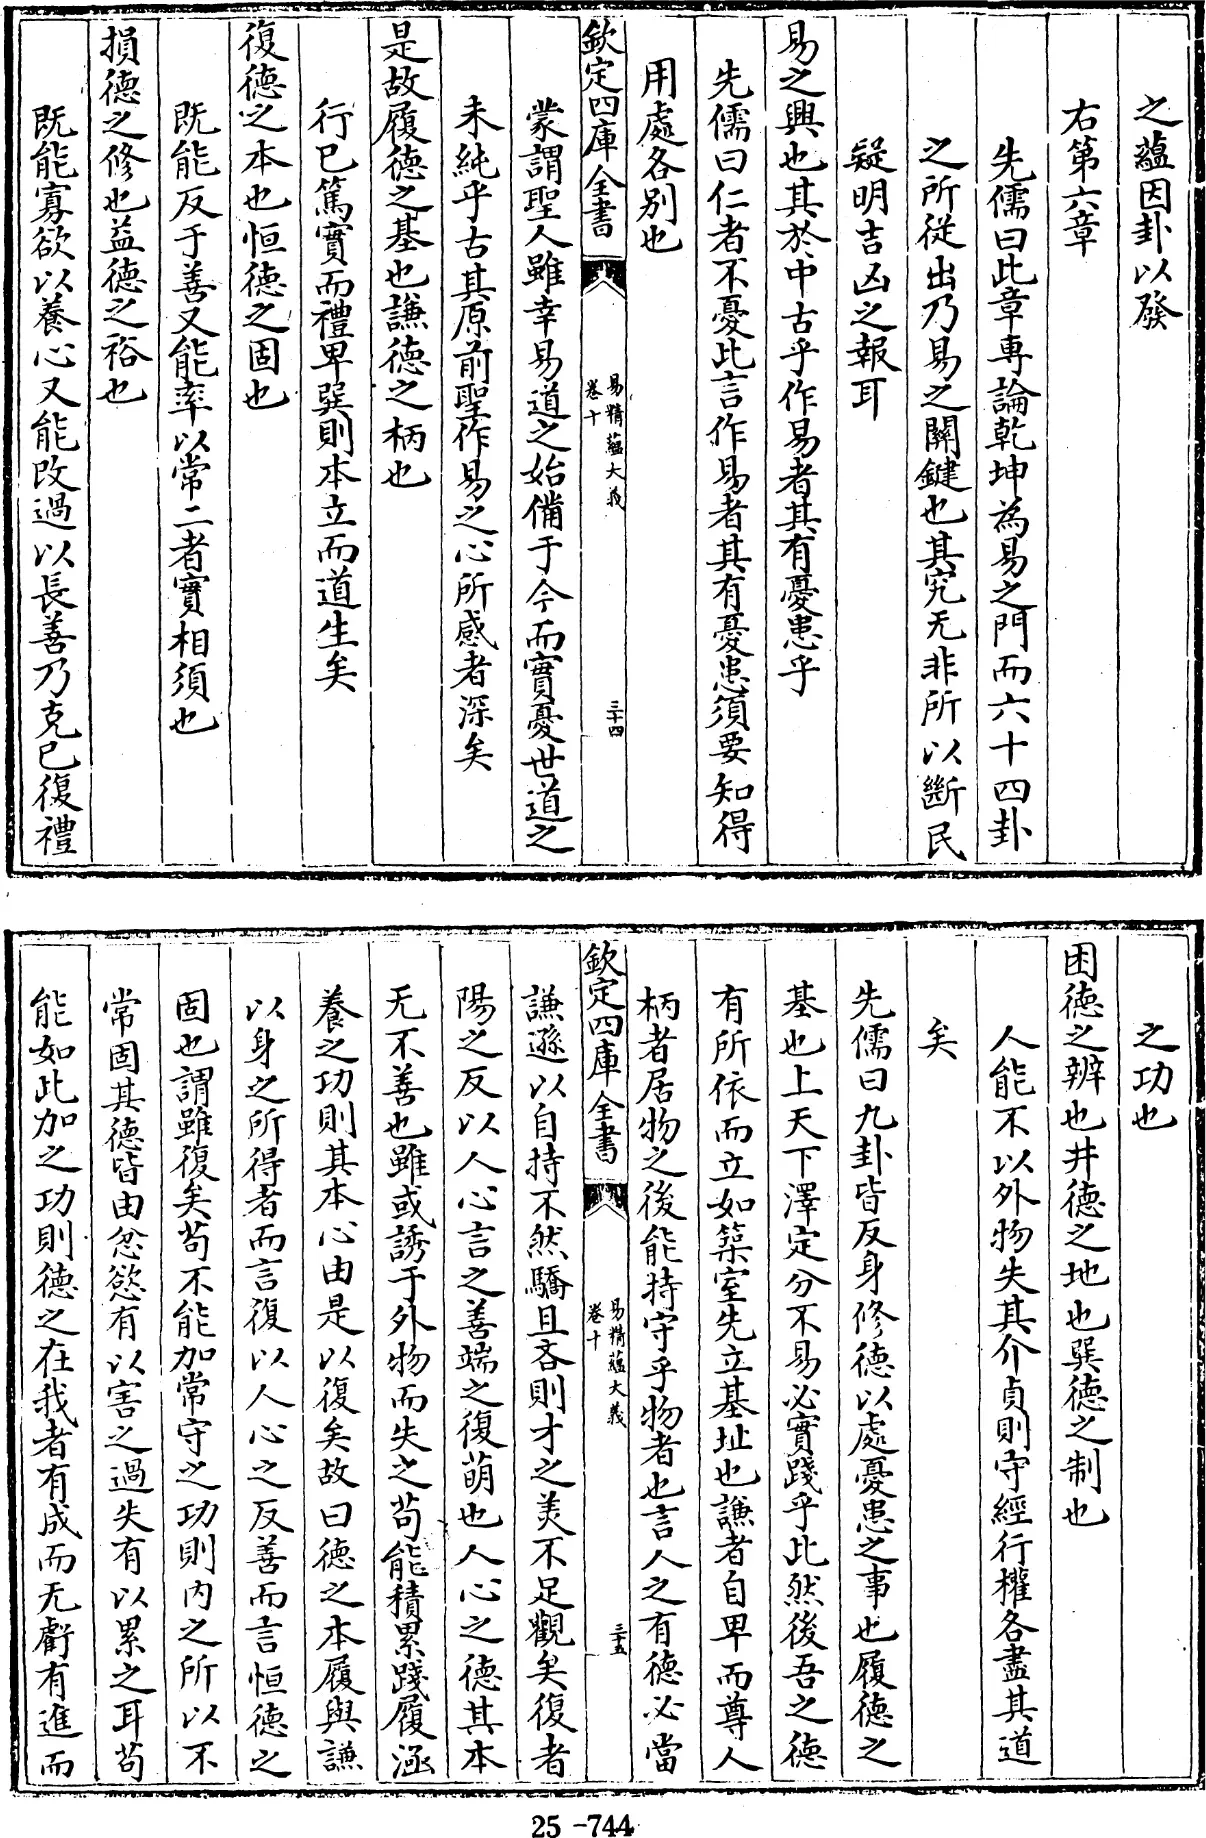 之蘊因卦以發
右第六章
先儒曰此章専論乾坤為易之門而六十四卦
之所從出乃易之關鍵也其究无非所以斷民
疑明吉凶之報耳
易之興也其於中古乎作易者其有憂患乎
先儒曰仁者不憂此言作易者其有憂患須要知得
用處各別也
欽定四庫全書
易精蘊大義
卷十
三十四
蒙謂聖人雖幸易道之始備于今而實憂世道之
未純乎古其原前聖作易之心所感者深矣
是故履德之基也謙德之柄也
行已篤實而禮卑巽則本立而道生矣
復德之本也恒德之固也
既能反于善又能率以常二者實相須也
損德之修也益德之裕也
既能寡欲以養心又能改過以長善乃克已復禮
之功也
困德之辨也井德之地也巽德之制也
人能不以外物失其介貞則守經行權各盡其道
矣
先儒曰九卦皆反身修德以處憂患之事也履德之
基也上天下澤定分不易必實踐乎此然後吾之德
有所依而立如築室先立基址也謙者自卑而尊人
柄者居物之後能持守乎物者也言人之有德必當
欽定四庫全書
易精蘊大義
卷十
三十五
謙遜以自持不然驕且吝則才之美不足觀矣復者
陽之反以人心言之善端之復萌也人心之德其本
无不善也雖或誘于外物而失之苟能積累踐履涵
養之功則其本心由是以復矣故曰德之本履與謙
以身之所得者而言復以人心之反善而言恒德之
固也謂雖復矣苟不能加常守之功則内之所以不
常固其德皆由忿慾有以害之過失有以累之耳苟
能如此加之功則德之在我者有成而无虧有進而
25-744